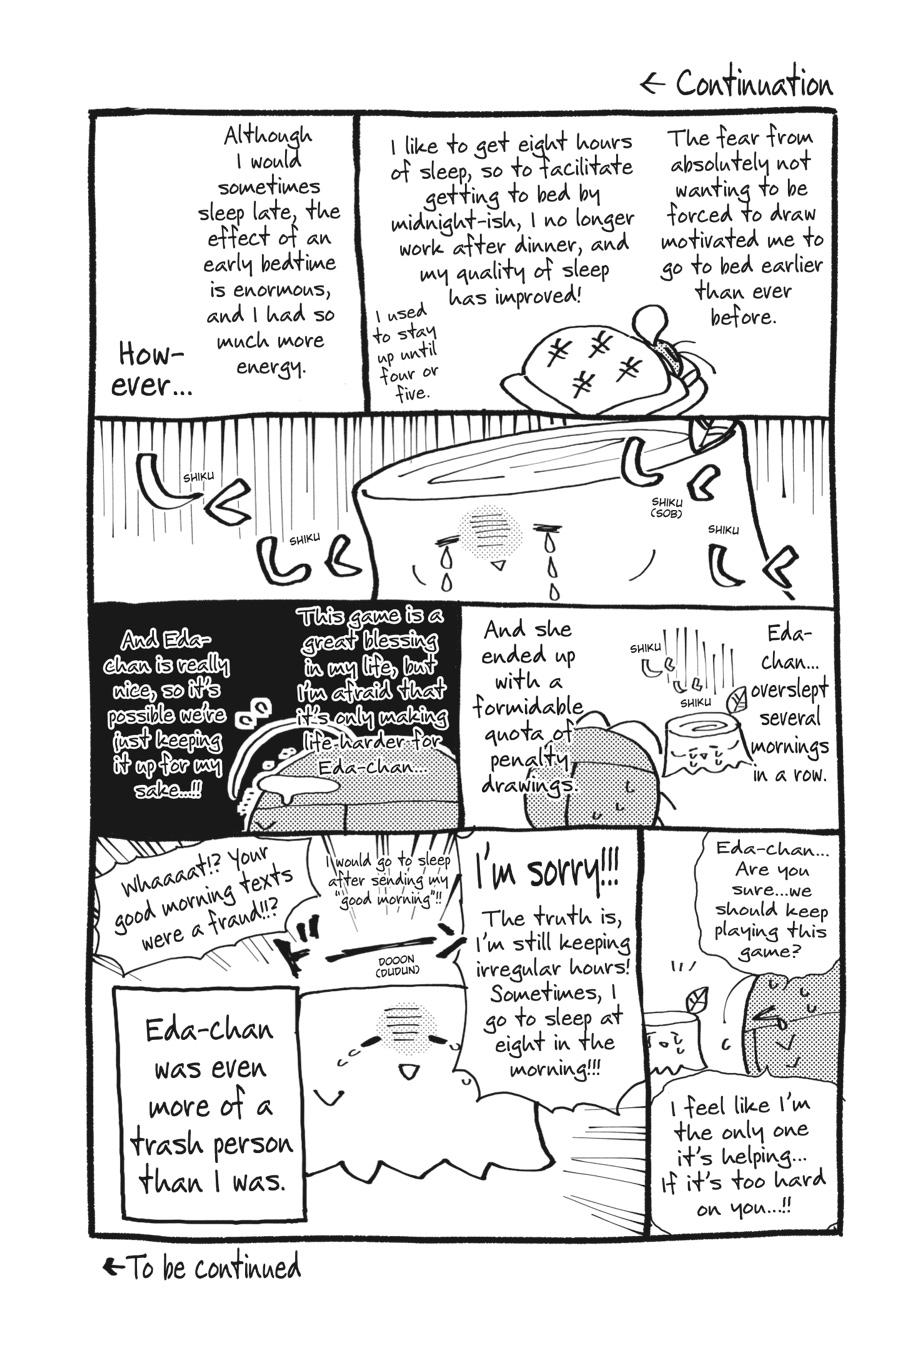 ← Continuation
The fear from
absolutely not
wanting to be
forced to draw
motivated me to
go to bed earlier
than ever
before.
I like to get eight hours
of sleep, so to facilitate
getting to bed by
midnight-ish, I no longer
work after dinner, and
my quality of sleep
has improved!
I used
to stay
up until
four or
five.
¥ ¥
¥ ¥
Although
I would
sometimes
sleep late, the
effect of an
early bedtime
is enormous,
and I had so
much more
energy.
How-
ever...
SHIKU
(SOB)
SHIKU
SHIKU
SHIKU
Eda-
chan...
overslept
several
mornings
in a row.
SHIKU
SHIKU
And she
ended up
with a
formidable
quota of
penalty
drawings.
This game is a
great blessing
in my life, but
I'm afraid that
it's only making
life harder for
Eda-chan...
And Eda-
chan is really
nice, so it's
possible we're
just keeping
it up for my
sake...!!
Eda-chan...
Are you
sure...we
should keep
playing this
game?
I feel like I'm
the only one
it's helping...
If it's too hard
on you...!!
I'm sorry!!!
The truth is,
I'm still keeping
irregular hours!
Sometimes, I
go to sleep at
eight in the
morning!!!
I would go to sleep
after sending my
"good morning"!!
DOOON
(DUDUN)
Whaaaat!? Your
good morning texts
were a fraud!!?
Eda-chan
was even
more of a
trash person
than I was.
←To be continued